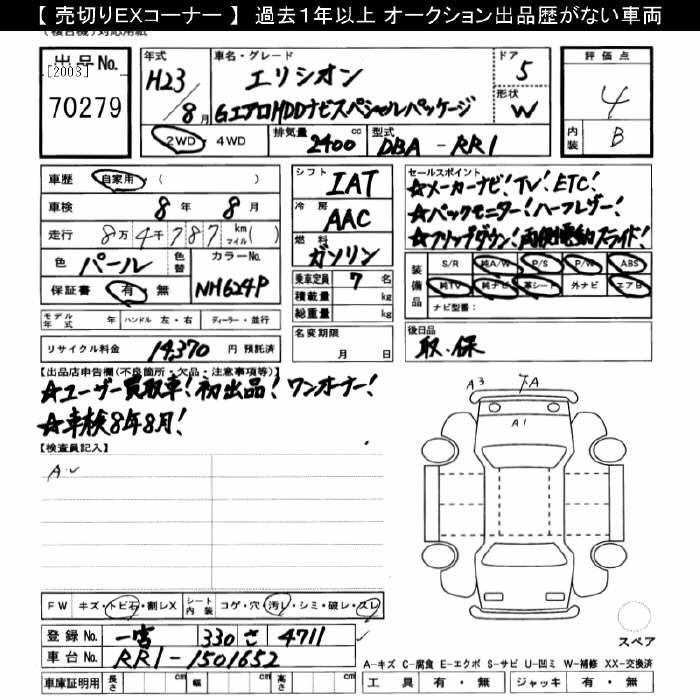 【 売切りEXコーナー 】 過去１年以上 オークション出品歴がない車両
出品No.
[2003]
70279
年式
H23/8月
車名・グレード
エリシオン
GエアロHDDナビスペシャルパッケージ
ドア
5
形状
W
評価点
4
内装
B
2WD・4WD
排気量 2400 cc
型式 DBA - RR1
車歴 自家用・( )
車検 8年 8月
走行 8万4千787 km マイル( )
色 パール 色替
カラーNo. NH624P
保証書 有・無
モデル年式 年 ハンドル 左・右 ディーラー・並行
リサイクル料金 14,370 円 預託済
シフト
IAT
冷房
AAC
燃料
ガソリン
乗車定員 7 名
積載量 kg
総重量 kg
名変期限
月 日
セールスポイント
☆メーカーナビ！TV！ETC！
☆バックモニター！ハーフレザー！
☆フリップダウン！両側電動スライド！
装備品
S/R 純A/W P/S P/W ABS
純TV 純ナビ 革シート 外ナビ エアB
ナビ型番：
後日品
取・保
【出品店申告欄(不良箇所・欠品・注意事項等)】
☆ユーザー買取車！初出品！ワンオーナー！
☆車検8年8月！
【検査員記入】
A3
A1
FW キズ・トビ石・割レX シート内装 コゲ・穴・汚レ・シミ・破レ・スレ
登録No. 一宮 330 さ 4711
車台No. RR1-1501652
車庫証明用 長さ cm 幅 cm 高さ cm
スペア
A-キズ C-腐食 E-エクボ S-サビ U-凹ミ W-補修 XX-交換済
工具 有・無 ジャッキ 有・無